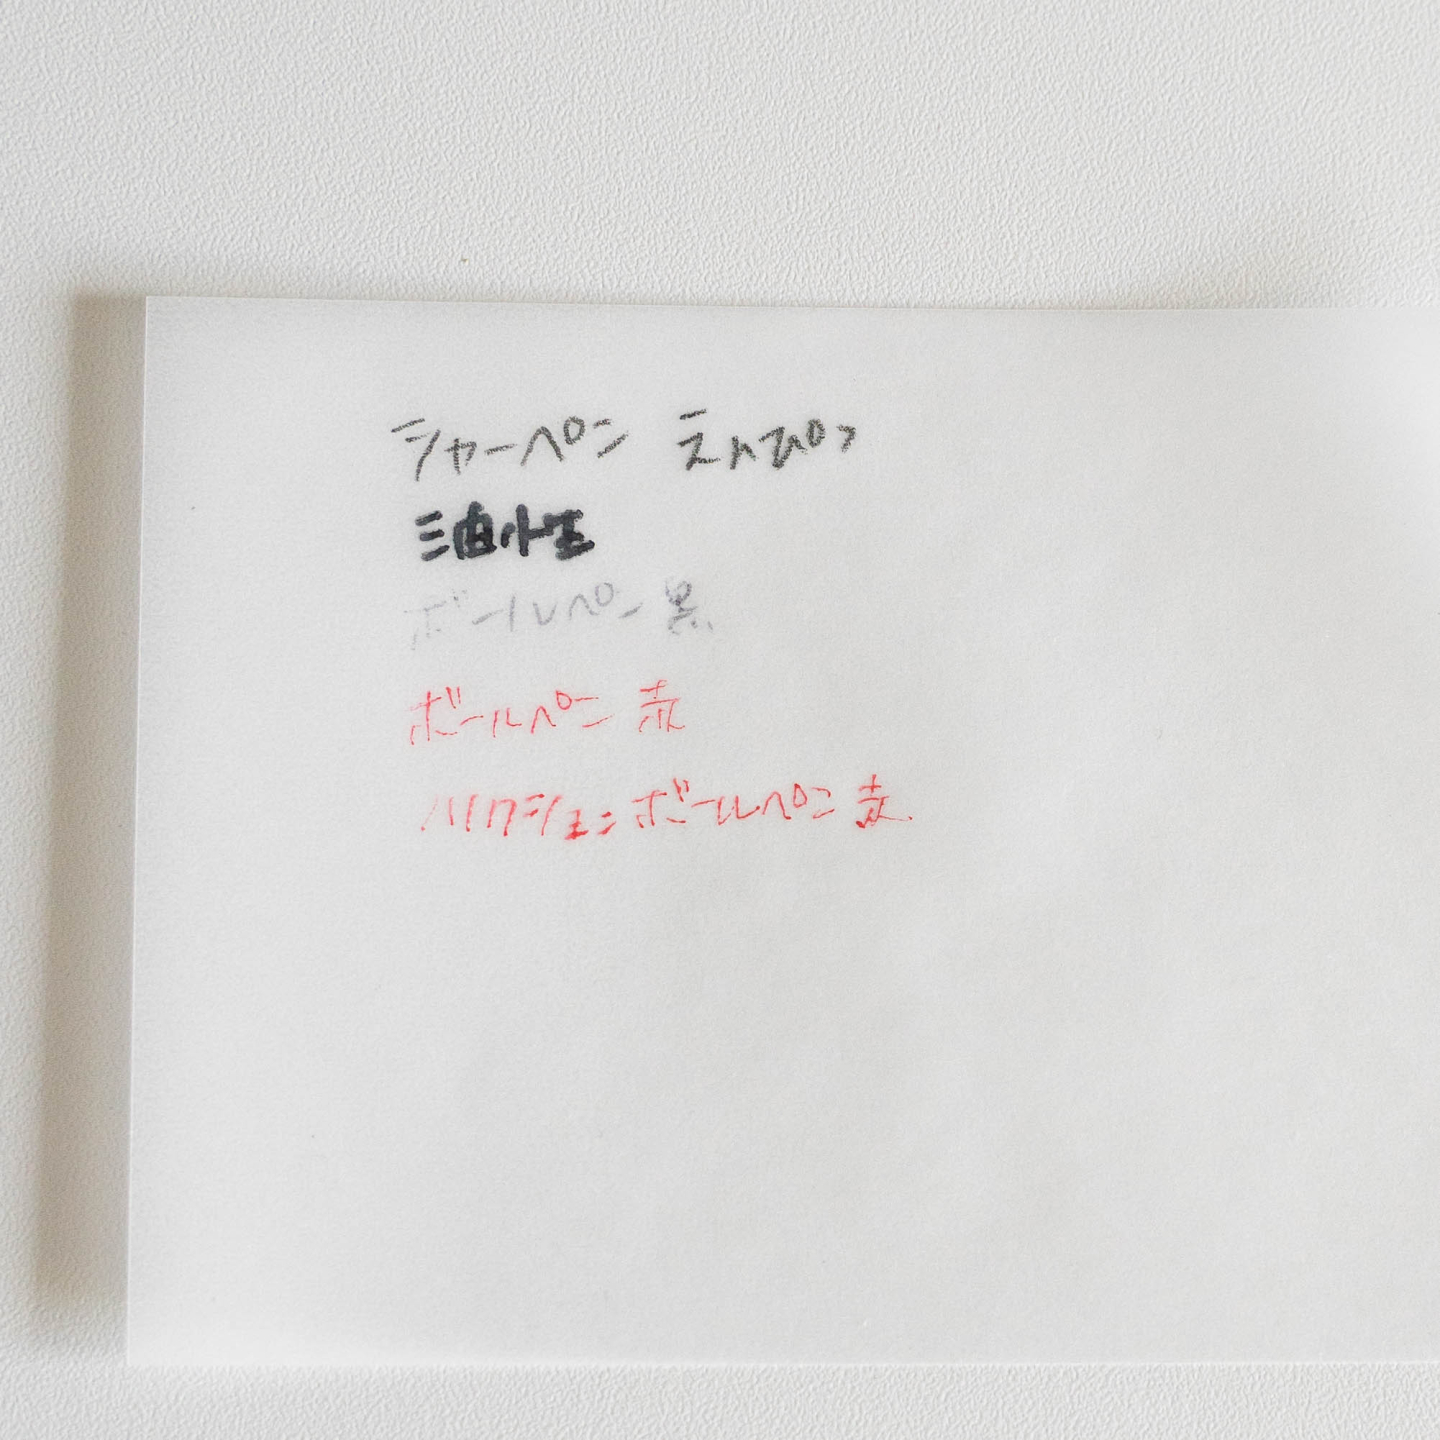 シャーペン えんぴつ
油性
ボールペン 黒
ボールペン 赤
ハイクション ボールペン 赤